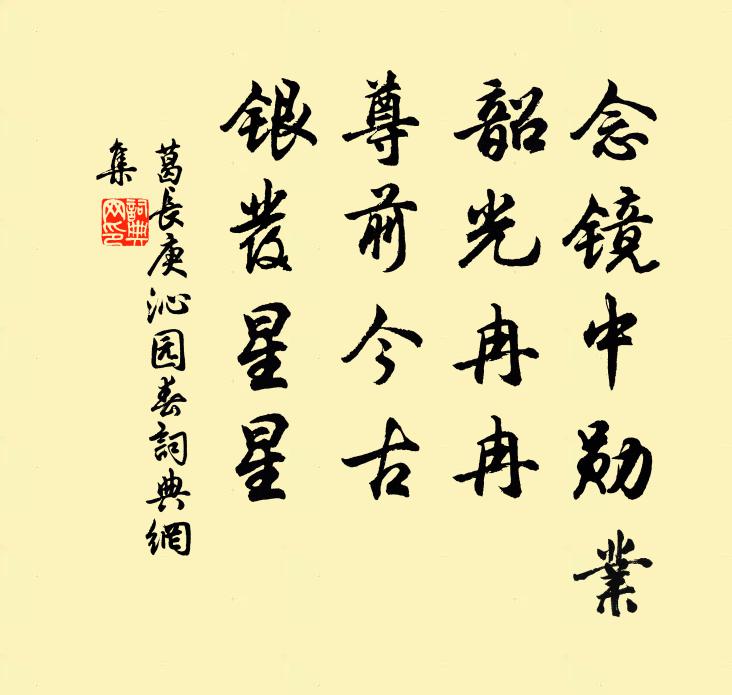 念镜中勋業
韶光冉冉
尊前今古
银发星星
葛長庚沁园春詞典網
集
詞典
网印